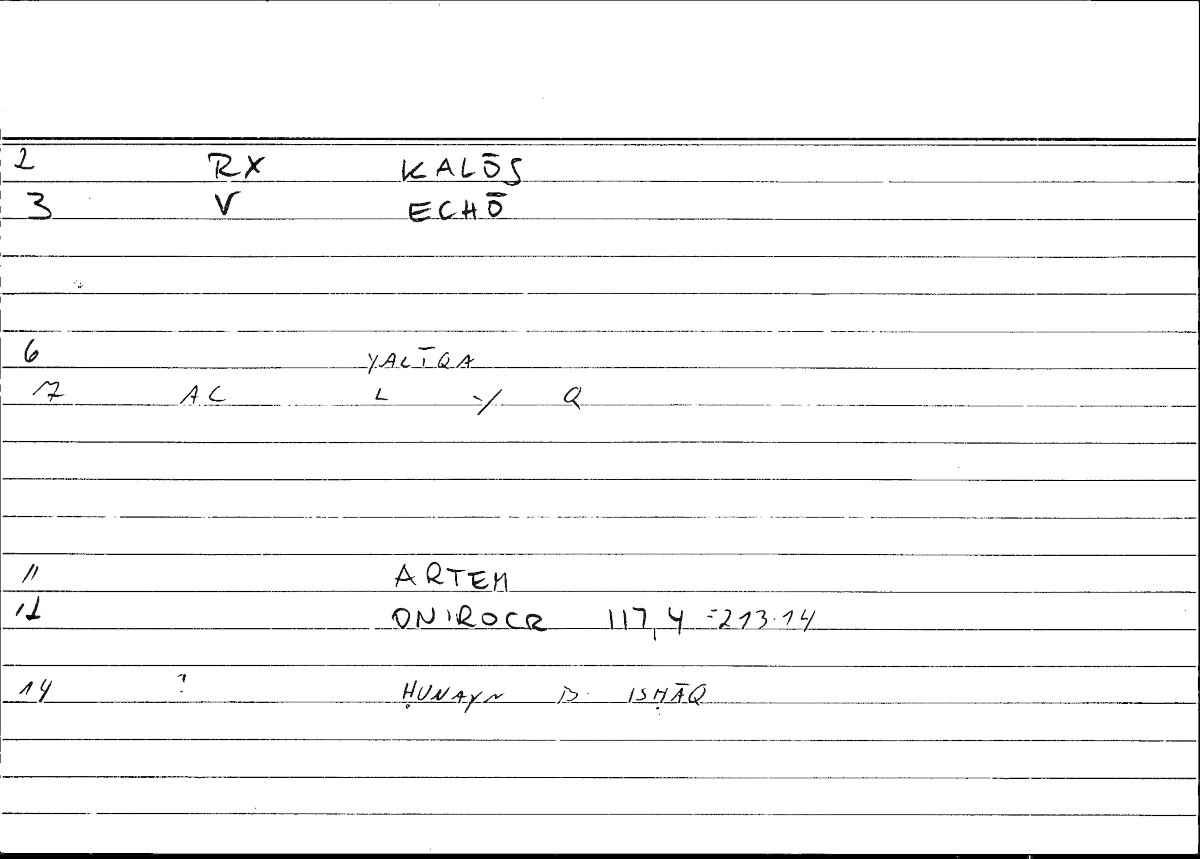 2 RX KALŌS
3 V ECHŌ
6 YALĪQA
7 AC L Y Q
11 ARTEM
12 ONIROCR 117,4 =213.14
14 ? ḤUNAYN B. ISḤĀQ